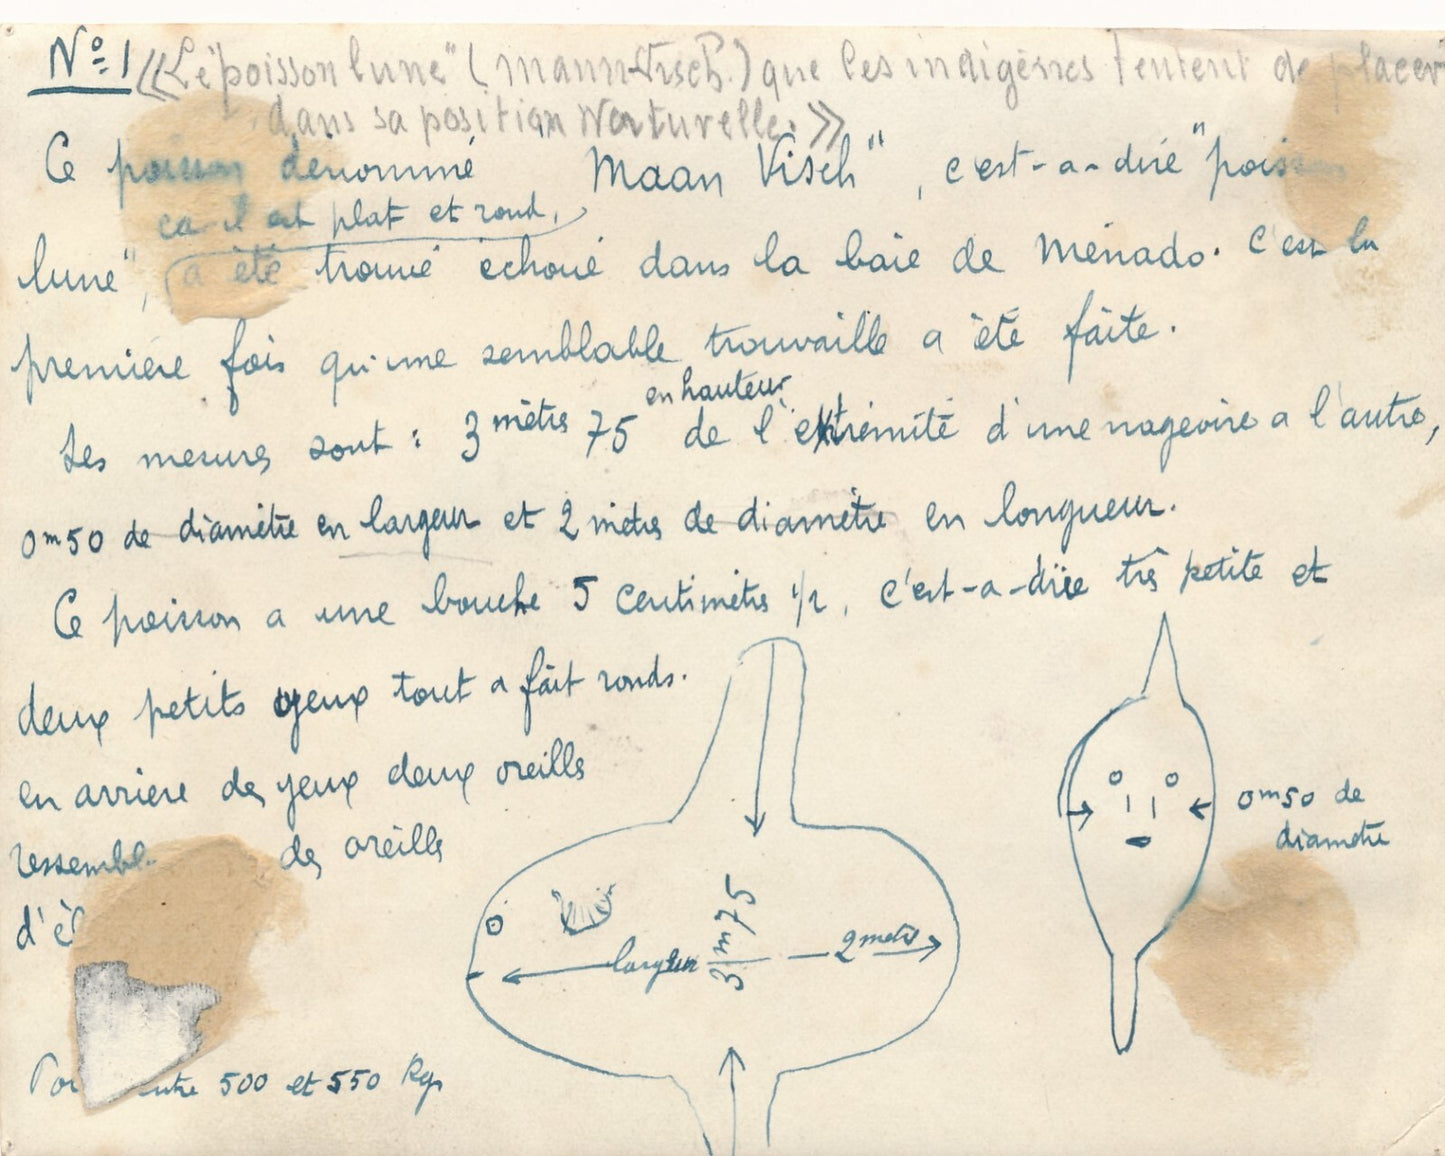 Nº 1 « Le "poisson lune" (mann-Visch.) que les indigènes tentent de placer
dans sa position Naturelle. »
Ce poisson dénommé Maan Visch", c'est-a-dire "poisson
car il est plat et rond,
lune", a été trouvé échoué dans la baie de Ménado. C'est la
première fois qu'une semblable trouvaille a été faite.
en hauteur
Les mesures sont : 3 mètres 75 de l'extrémité d'une nageoire a l'autre,
0m50 de diamètre en largeur et 2 mètres de diamètre en longueur.
Ce poisson a une bouche 5 centimètres 1/2, c'est-a-dire très petite et
deux petits yeux tout a fait ronds.
en arrière des yeux deux oreilles
des oreilles
500 et 550 Kgs
largeur
3m75
2 metres
0m50 de
diametre